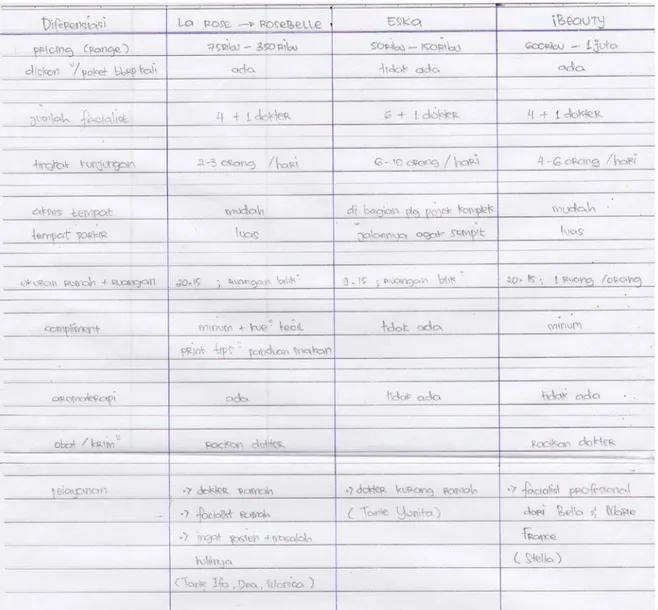 Diferensiasi La Rose → RoseBelle Eska iBeauty
pricing (Range) 75Ribu – 350Ribu 50Ribu – 150Ribu 600Ribu – 1 juta
diskon / paket bbrp kali ada tidak ada ada
jumlah facialist 4 + 1 dokter 6 + 1 dokter 4 + 1 dokter
tingkat kunjungan 2-3 orang /hari 6-10 orang /hari 4-6 orang /hari
akses tempat mudah di bagian plg pojok komplek mudah
tempat parkir luas jalannya agak sempit luas
ukuran rumah + ruangan 20·15 ; ruangan blik" 9·15 ; ruangan blik" 20·15 ; 1 ruang /orang
compliment minum + kue" kecil tidak ada minum
print tips" panduan makan
aromaterapi ada tidak ada tidak ada
obat / krim" racikan dokter racikan dokter
pelayanan •> dokter ramah •> dokter kurang ramah •> facialist profesional
•> facialist ramah (Tante Yunita) dari Bella & Marie
•> ingat pasien + masalah France
kulitnya (Stella)
(Tante Ifa, Dea, Monica)